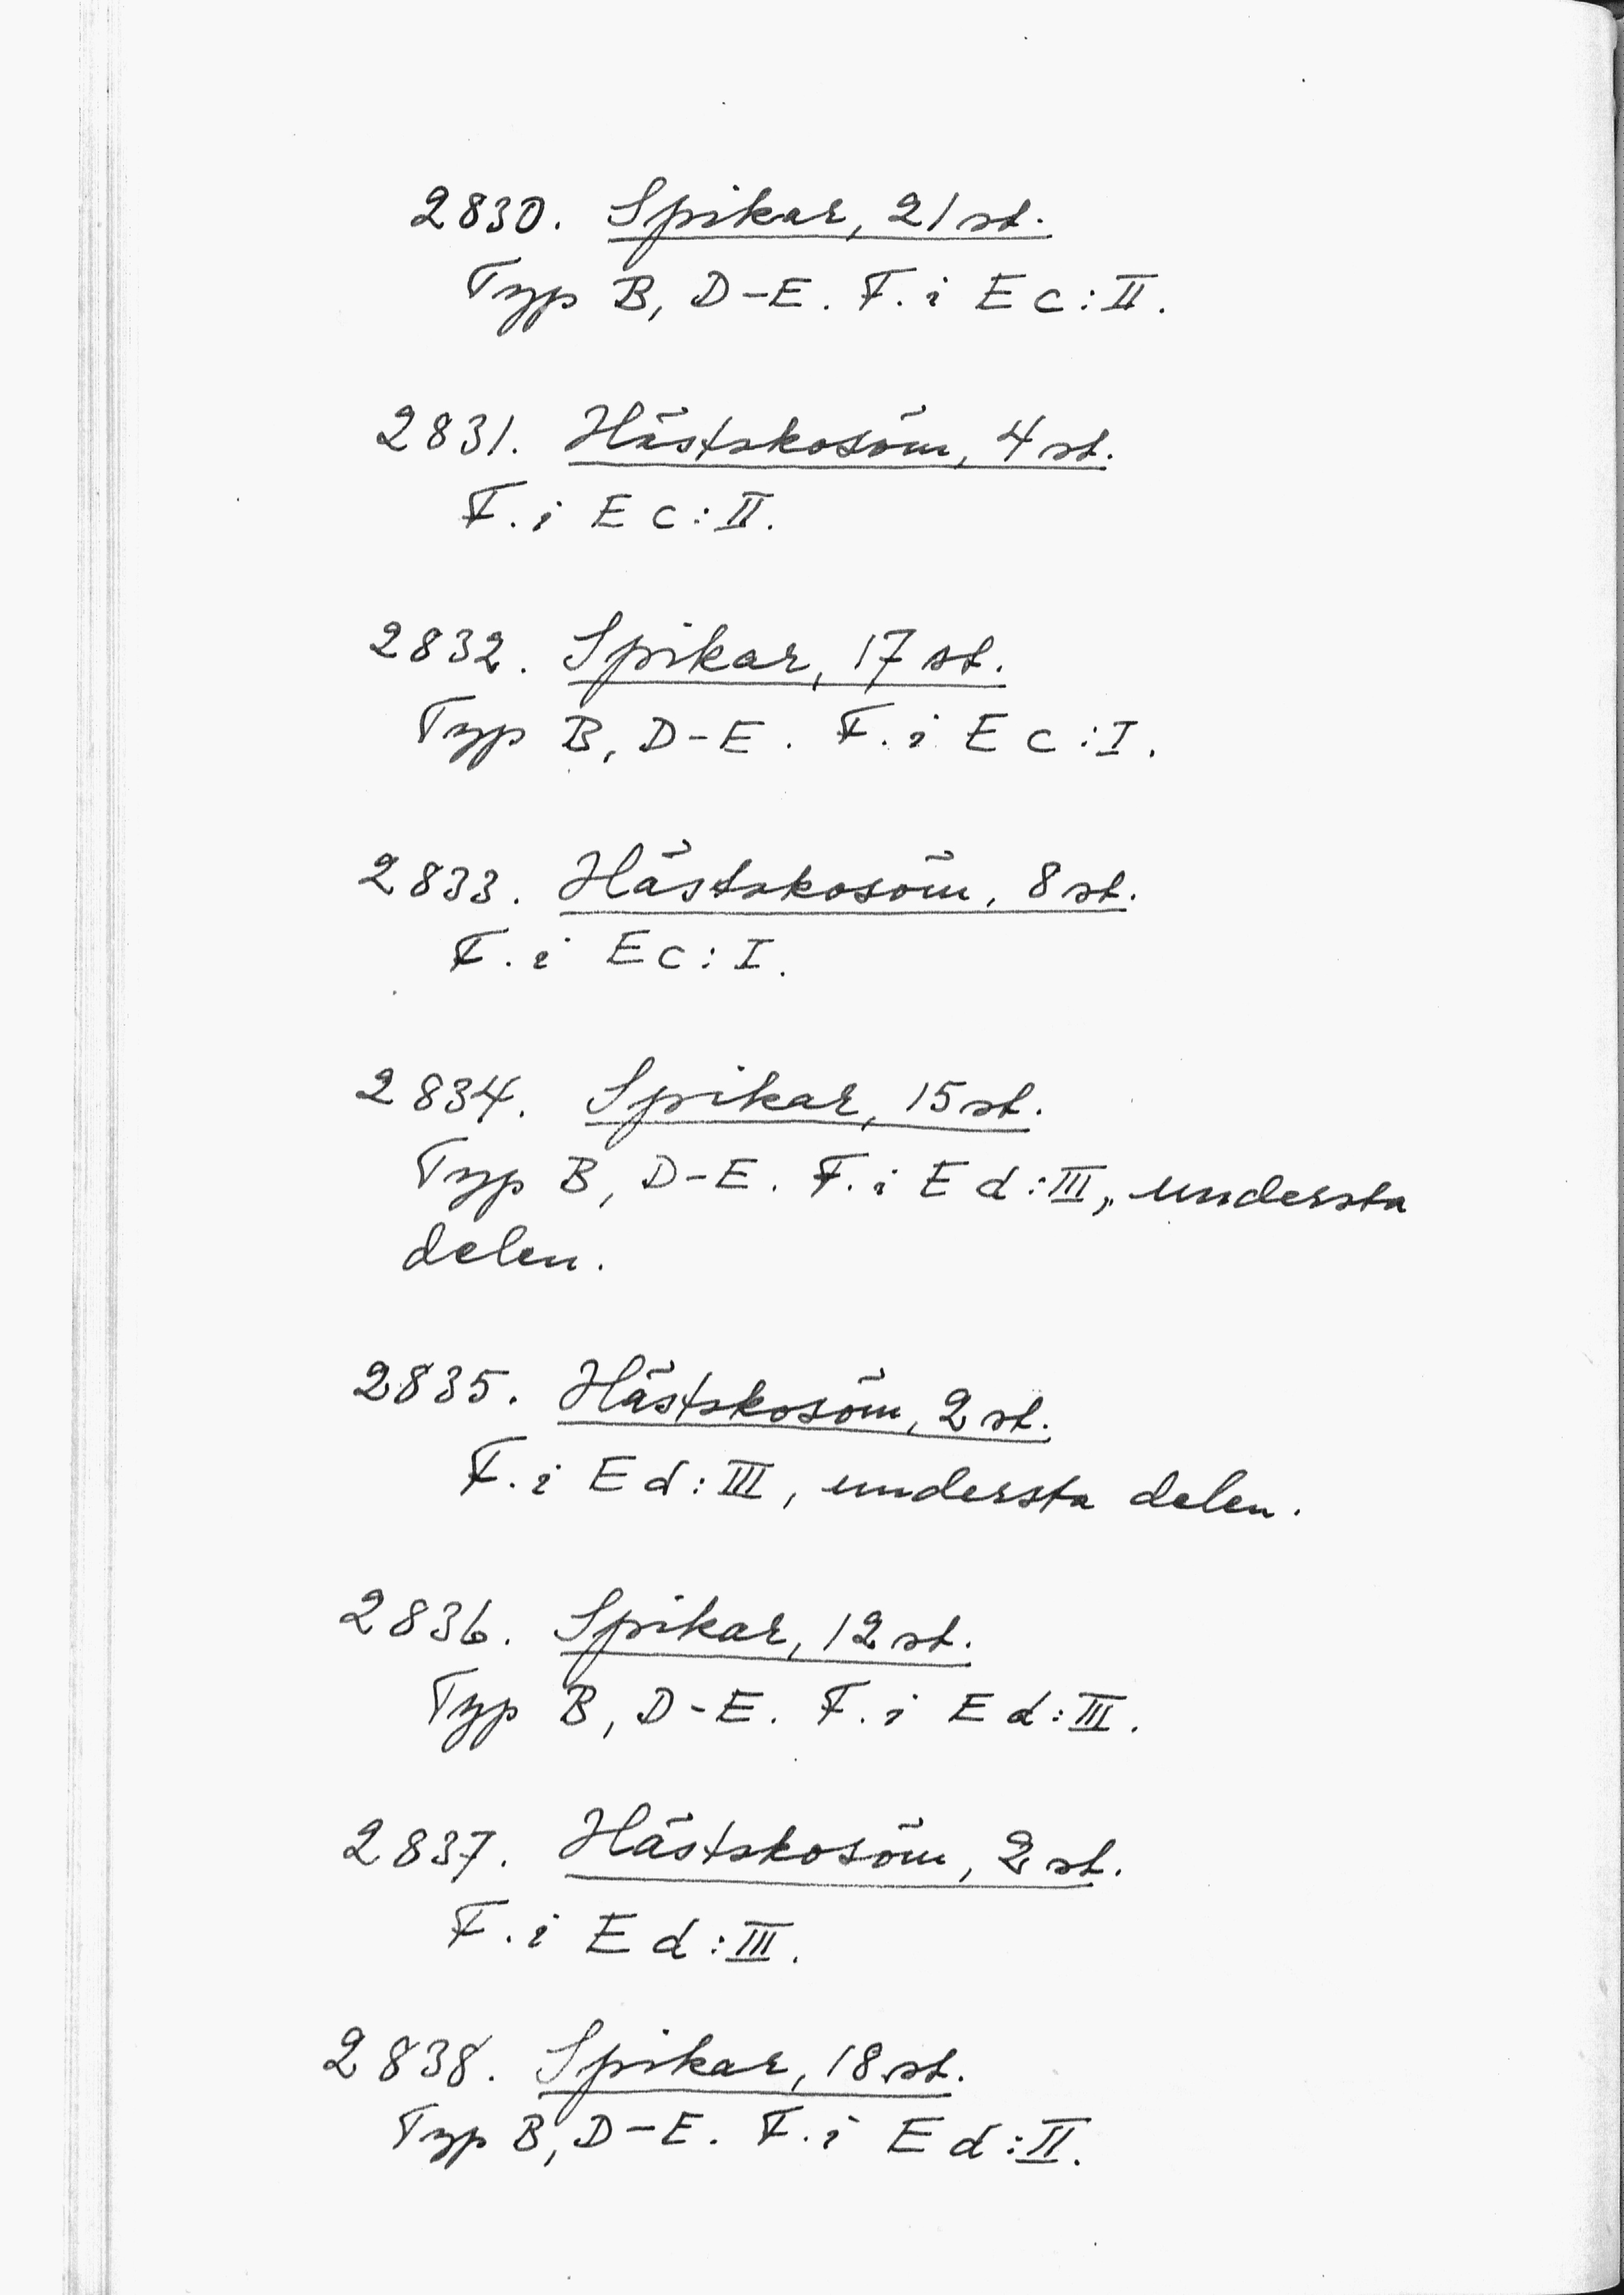 2830. Spikar, 21 st.
Typ B, D-E. F. i E c:II.
2831. Hästskosöm, 4 st.
F. i E c:II.
2832. Spikar, 17 st.
Typ B, D-E. F. i E c:I.
2833. Hästskosöm, 8 st.
F. i E c:I.
2834. Spikar, 15 st.
Typ B, D-E. F. i E d:III, understa
delen.
2835. Hästskosöm, 2 st.
F. i E d:III, understa delen.
2836. Spikar, 12 st.
Typ B, D-E. F. i E d:III.
2837. Hästskosöm, 2 st.
F. i E d:III.
2838. Spikar, 18 st.
Typ B, D-E. F. i E d:II.